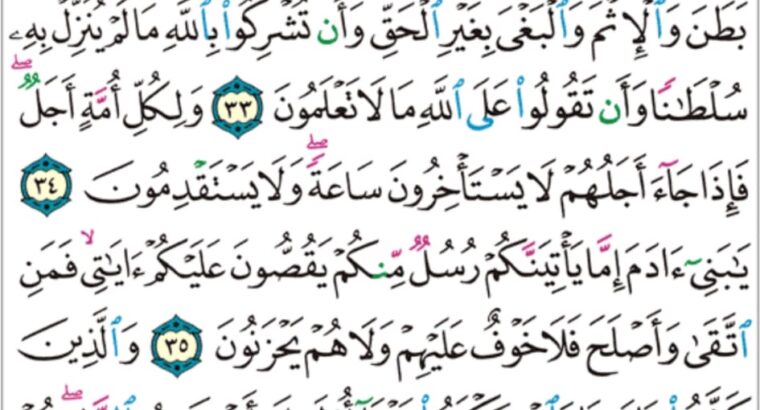 بَطَنَ وَٱلْإِثْمَ وَٱلْبَغْىَ بِغَيْرِ ٱلْحَقِّ وَأَن تُشْرِكُوا۟ بِٱللَّهِ مَا لَمْ يُنَزِّلْ بِهِۦ
سُلْطَٰنًا وَأَن تَقُولُوا۟ عَلَى ٱللَّهِ مَا لَا تَعْلَمُونَ ٣٣ وَلِكُلِّ أُمَّةٍ أَجَلٌ ۖ
فَإِذَا جَآءَ أَجَلُهُمْ لَا يَسْتَأْخِرُونَ سَاعَةً ۖ وَلَا يَسْتَقْدِمُونَ ٣٤
يَٰبَنِىٓ ءَادَمَ إِمَّا يَأْتِيَنَّكُمْ رُسُلٌ مِّنكُمْ يَقُصُّونَ عَلَيْكُمْ ءَايَٰتِى ۙ فَمَنِ
ٱتَّقَىٰ وَأَصْلَحَ فَلَا خَوْفٌ عَلَيْهِمْ وَلَا هُمْ يَحْزَنُونَ ٣٥ وَٱلَّذِينَ